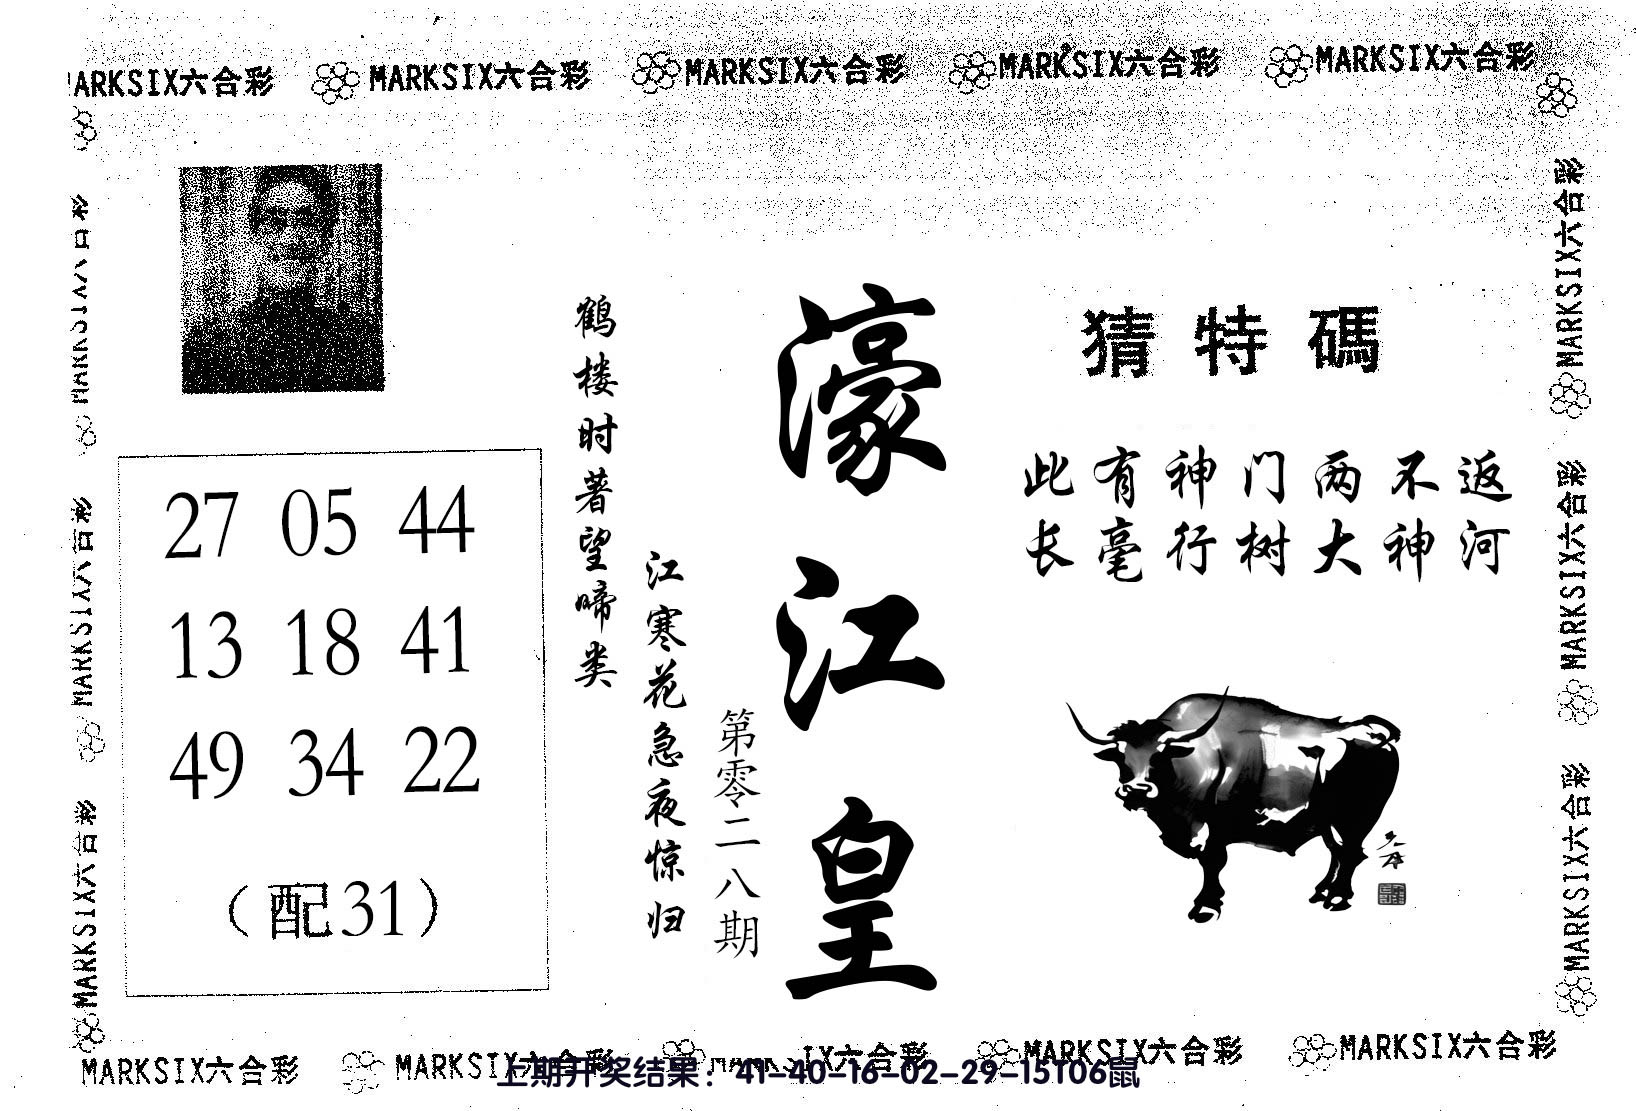 MARKSIX六合彩 MARKSIX六合彩 MARKSIX六合彩 MARKSIX六合彩 MARKSIX六合彩
猜特碼
此有神门两不返
长毫行树大神河
濠江皇
第零二八期
鹤楼时著望啼类
江寒花急夜惊归
27 05 44
13 18 41
49 34 22
（配31）
MARKSIX六合彩
MARKSIX六合彩
MARKSIX六合彩
MARKSIX六合彩
MARKSIX六合彩
MARKSIX六合彩
MARKSIX六合彩 MARKSIX六合彩 MARKSIX六合彩 MARKSIX六合彩
上期开奖结果：41-40-16-02-29-15T06鼠